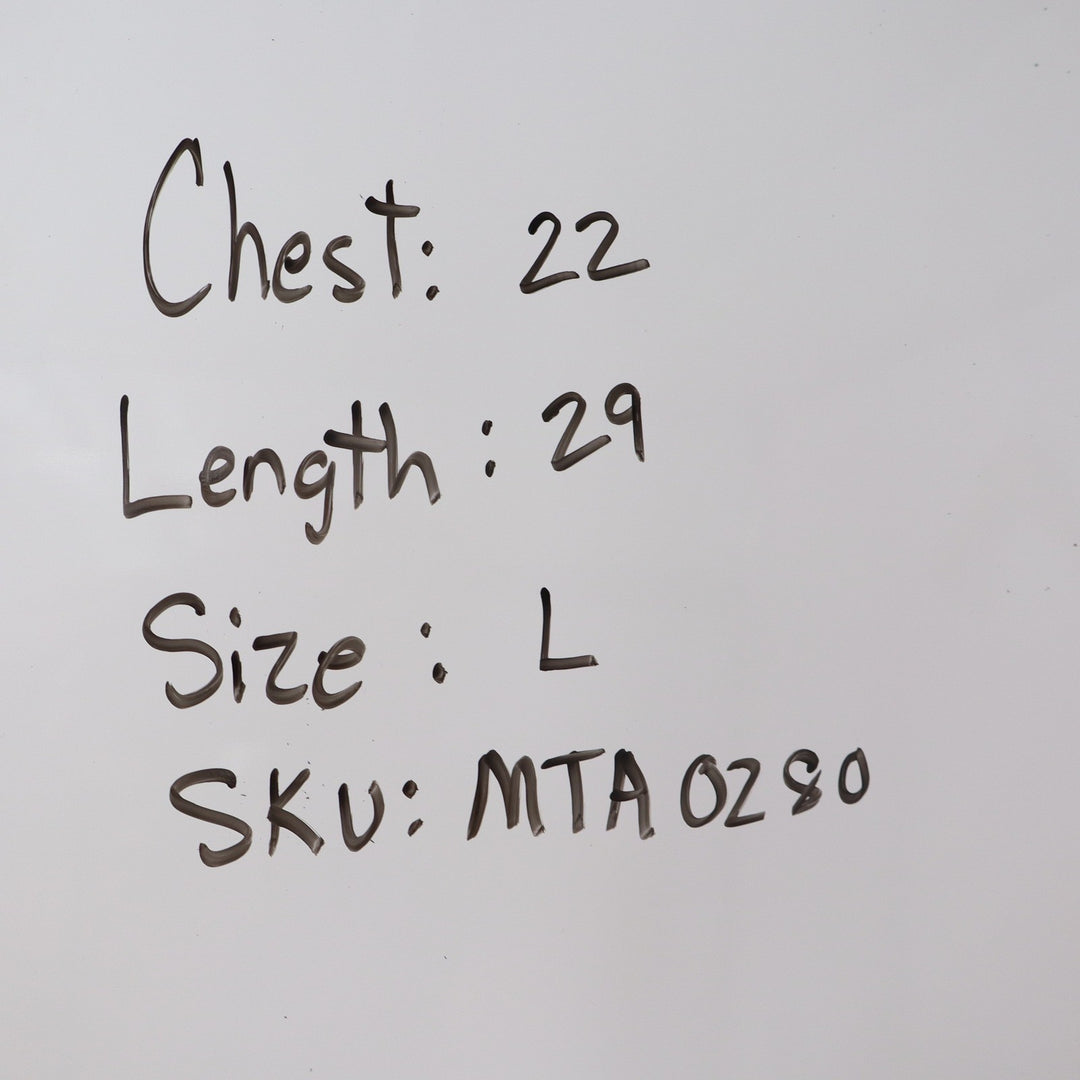 Chest: 22
Length: 29
Size: L
SKU: MTA0280